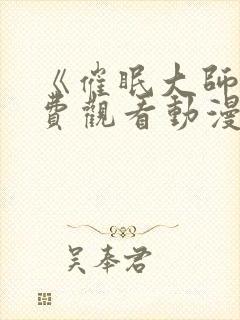 《催眠大師
費觀看動漫
吴奉君